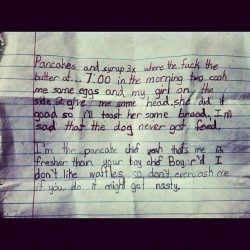 Pancakes and syrup 3x where the fuck the
butter at... 7:00 in the morning two cook
me some eggs and my girl on the
side 2 give me some head. she did it
good so i'll toast her some bread, I'm
sad that the dog never got feed.
I'm the pancake chef yeah thats me im
fresher than your toy chef Boy r'd I
don't like waffles so don't even ask me
if you do it might get nasty.